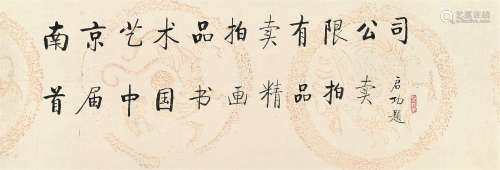 南京艺术品拍卖有限公司
首届中国书画精品拍卖
启功题